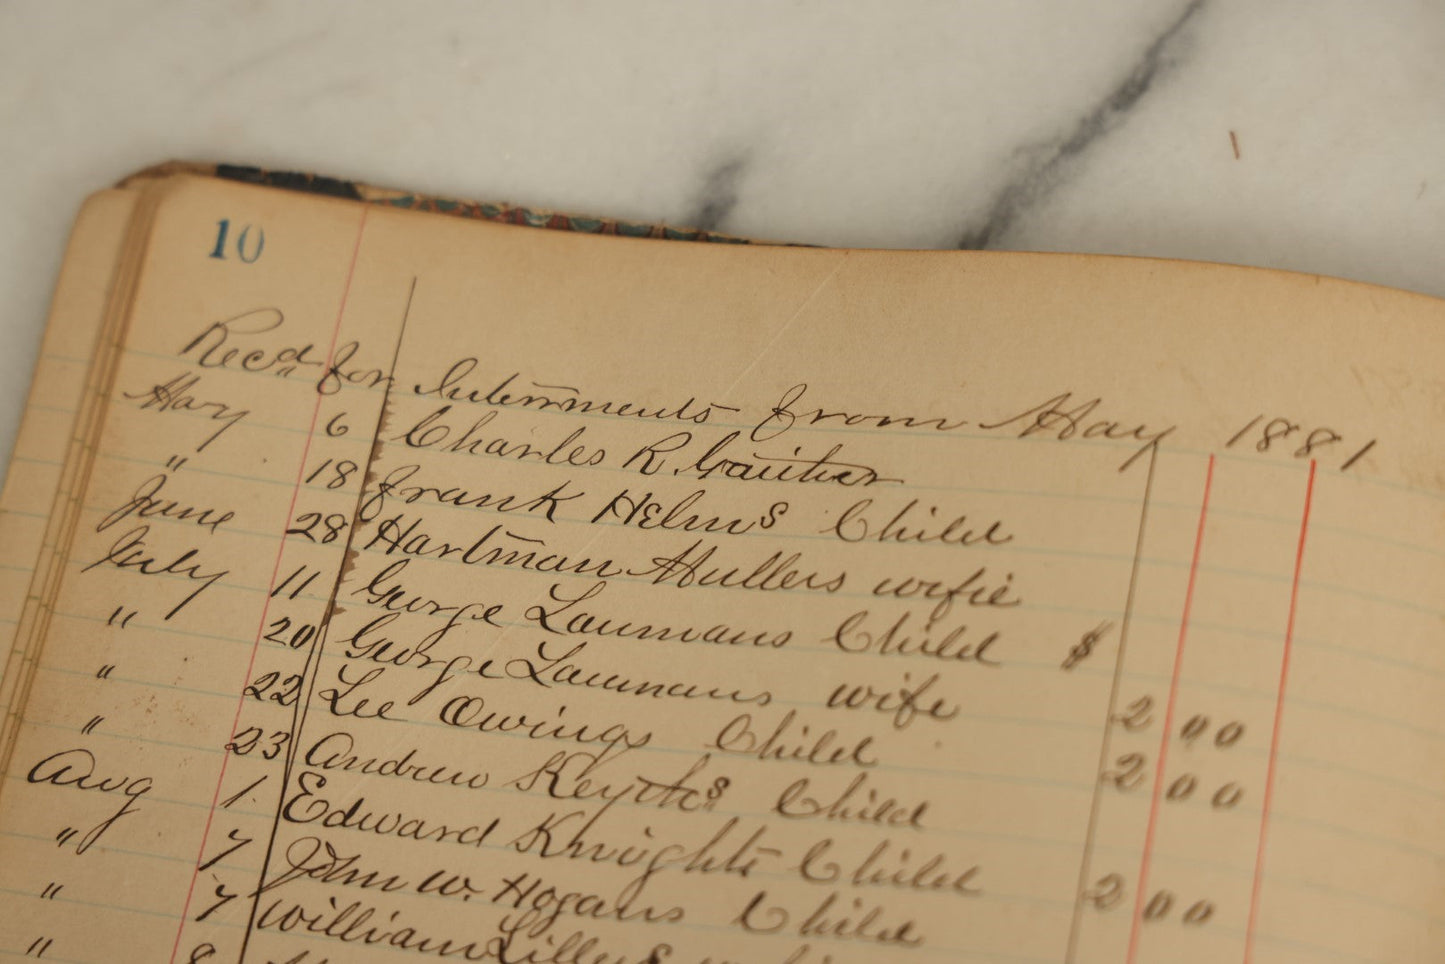 10
Rec'd for Interments from May 1881
May 6 Charles R. Gauther
" 18 Frank Helms Child
June 28 Hartman Mullers wife
July 11 George Laumans Child $
" 20 George Laumans wife 2 00
" 22 Lee Owings Child 2 00
" 23 Andrew Child
Aug 1. Edward Knights Child 2 00
" 7 John W. Hogans Child
" 7 William Lillys
" 8